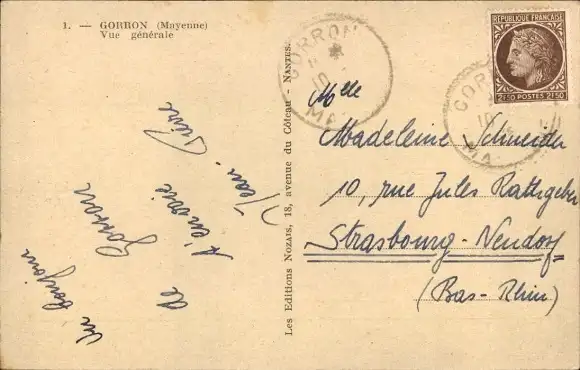 1. — GORRON (Mayenne)
Vue générale
Un bonjour
de Gorron
Jean-Pierre
Les Editions NOZAIS, 18, avenue du Côteau - NANTES.
GORRON
*
10
MA
REPUBLIQUE FRANÇAISE
2f50 POSTES 2f50
GOR
10
MA
Mlle
Madeleine Schneider
10, rue Jules Rathgeber
Strasbourg-Neudorf
(Bas-Rhin)